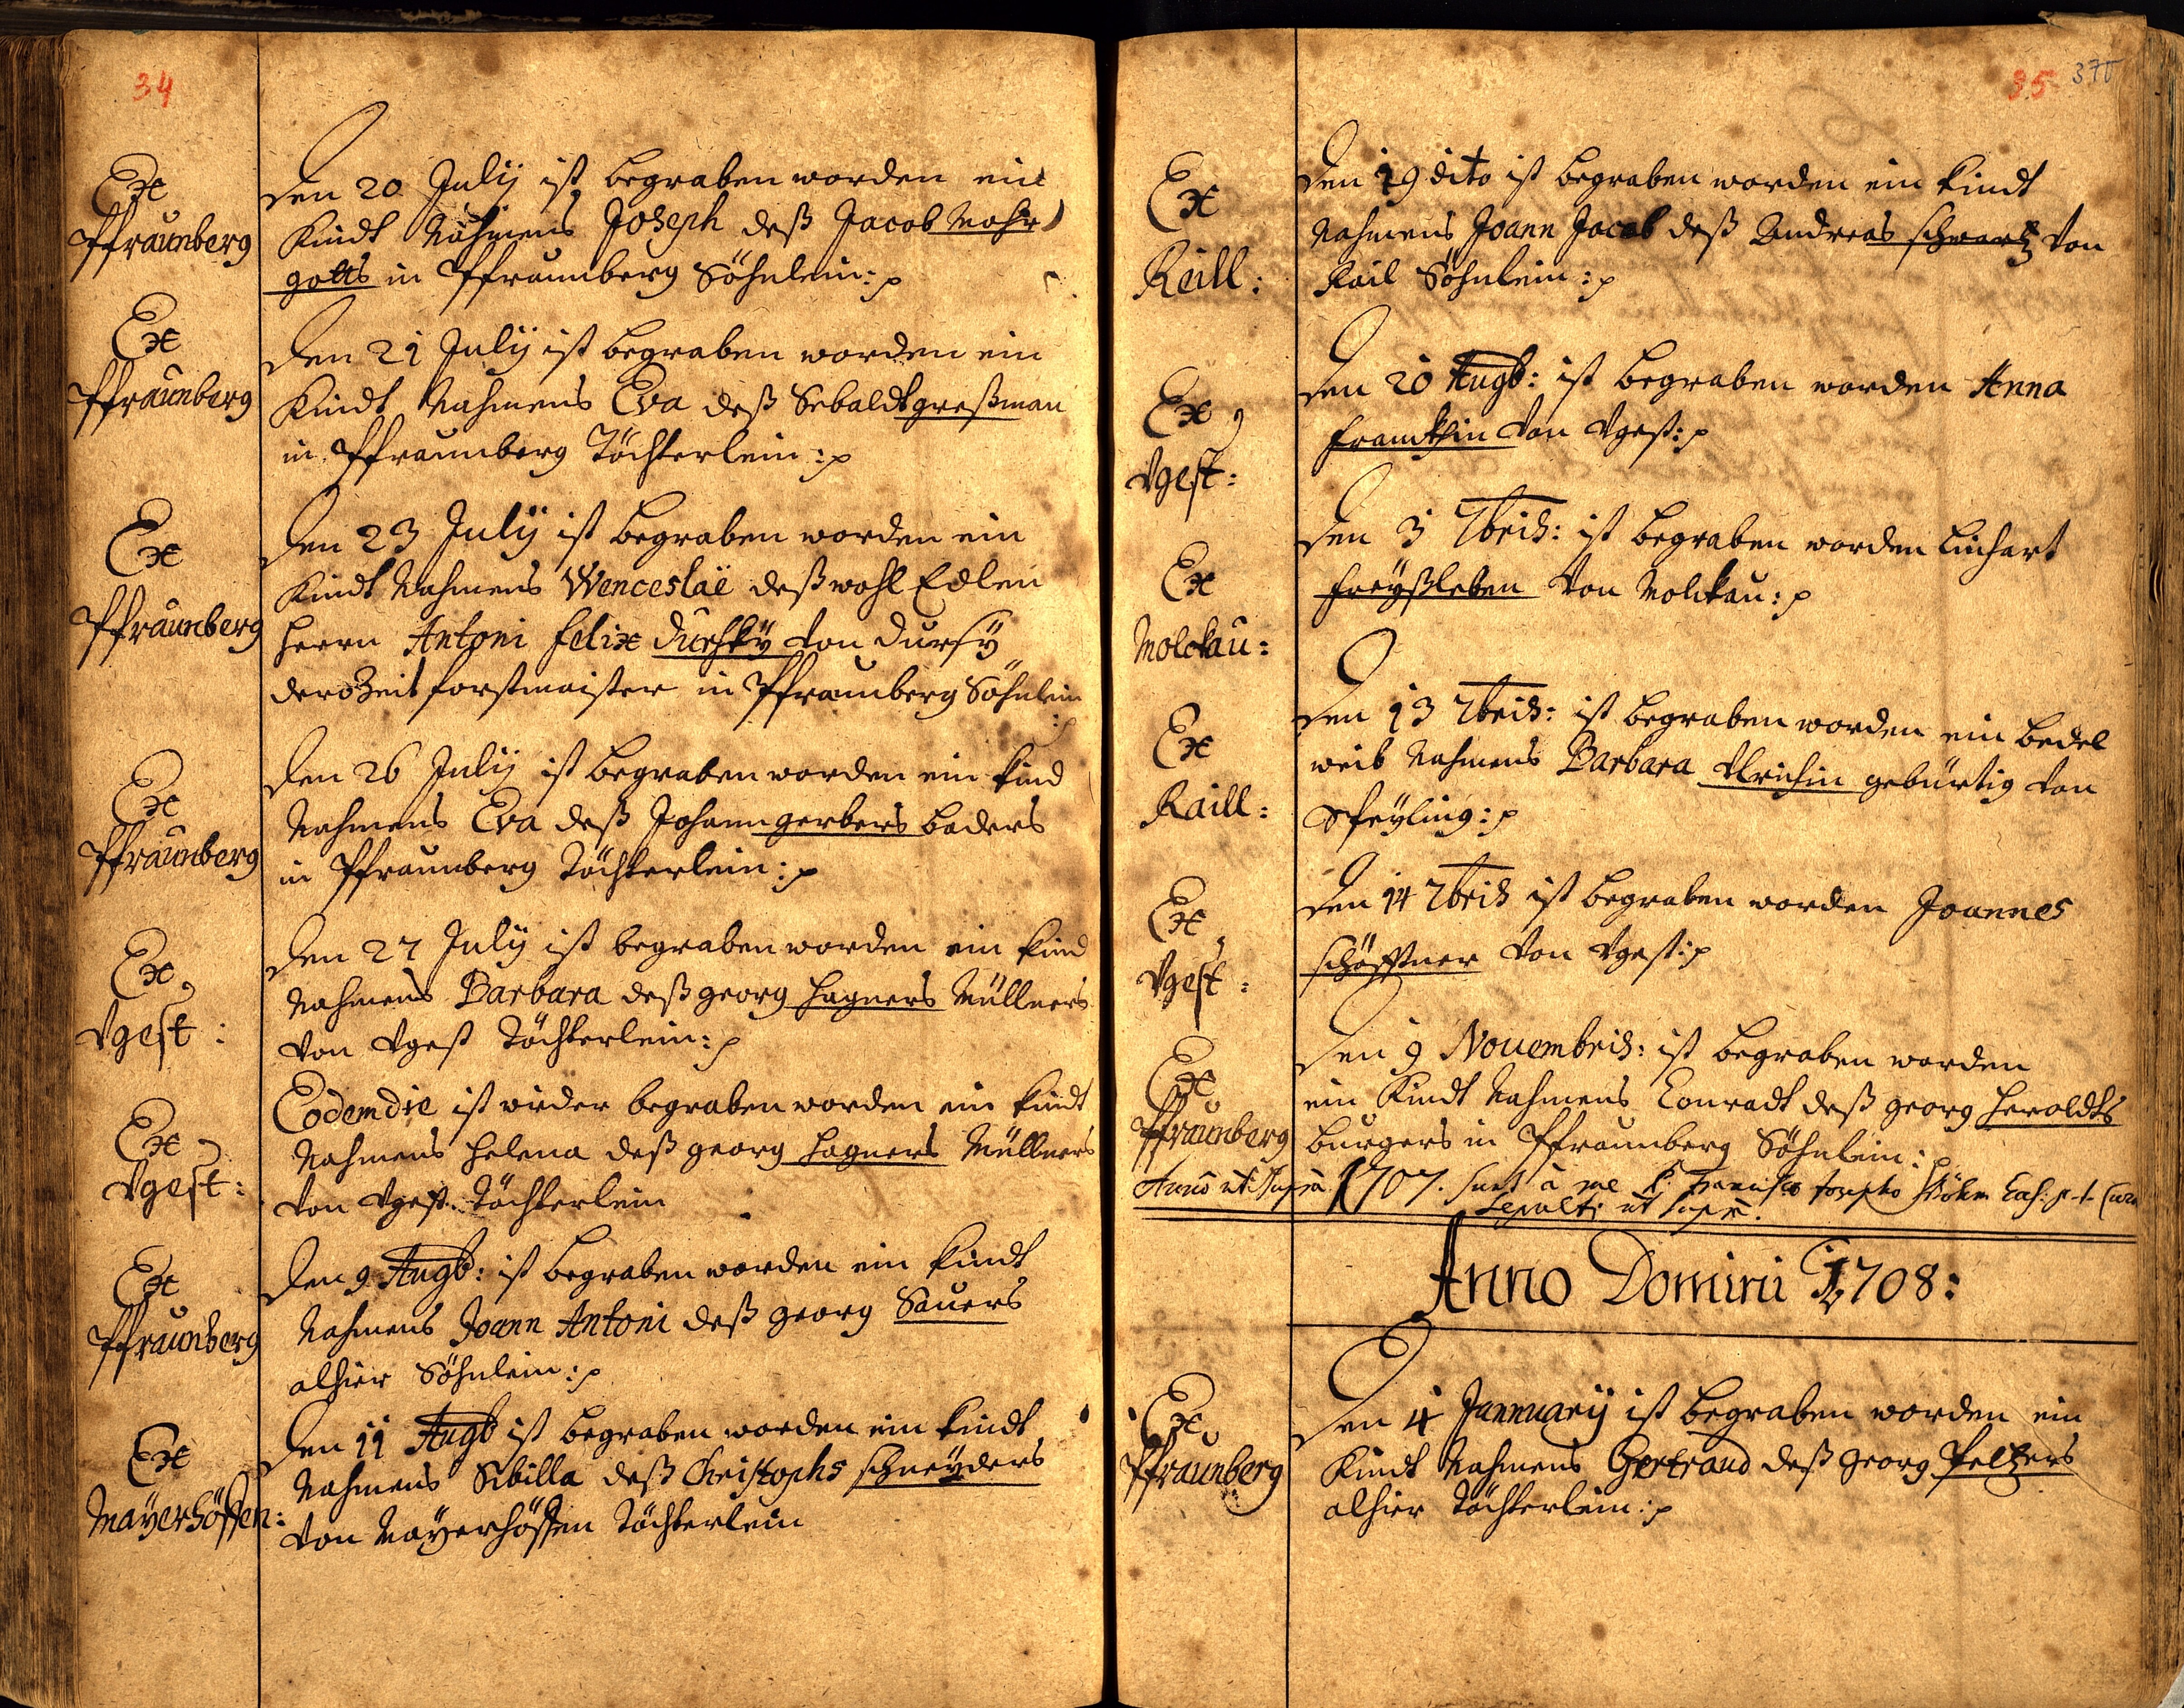 34
Ex
Pfraunberg
Den 20 Julij ist begraben worden ein
Kindt Nahmens Joseph deß Jacob Mohr
gotts in Pfraumberg Söhnlein:
Ex
Pfraunberg
Den 21 Julij ist begraben worden ein
Kindt Nahmens Eva deß Sebaldt greßman
in Pfraumberg Töchterlein:
Ex
Pfraunberg
Den 23 Julij ist begraben worden ein
Kindt Nahmens Wenceslaë deß wohl Edlen
Herrn Antoni Felix Durhsky von Dursy
derozeit forstmaister in Pfraumberg Söhnlein
Ex
Pfraunberg
Den 26 Julij ist begraben worden ein kind
Nahmens Eva deß Johann gerbers baders
in Pfraumberg Töchterlein:
Ex
Vgest:
Den 27 Julij ist begraben worden ein kind
Nahmens Barbara deß georg Hagners Müllners
von Vgest Töchterlein:
Ex
Vgest:
Eodem die ist wider begraben worden ein kindt
Nahmens Helena deß georg Hagners Müllners
von Vgest Töchterlein
Ex
Pfraunberg
Den 9 Augb: ist begraben worden ein kindt
Nahmens Joann Antoni deß georg Sauers
alhier Söhnlein:
Ex
Mayerhöffen:
Den 11 Augb ist begraben worden ein kindt
Nahmens Sibilla deß Christophs schneyders
von Mayerhöffen Töchterlein
35 370
Ex
Raill:
Den 19 dito ist begraben worden ein kindt
Nahmens Joann Jacob deß Andreas schwartz von
Rail Söhnlein:
Ex
Vgest:
Den 20 Augb: ist begraben worden Anna
Franckhin von Vgest:
Ex
Molckau:
Den 3 7bris: ist begraben worden Linhart
Freyßleben von Molckau:
Ex
Raill:
Den 13 7bris: ist begraben worden ein bedel
weib Nahmens Barbara Ulrichin gebürtig von
Speyling:
Ex
Vgest:
Den 14 7bris ist begraben worden Joannes
schöfftner von Vgest:
Ex
Pfraunberg
Den 9 Nouembris: ist begraben worden
ein Kindt Nahmens Conradt deß georg Heroldts
burgers in Pfraumberg Söhnlein:
Anno ut supra 1707. sunt à me Francisco Josepho Böhm
Sepulti ut supra.
Anno Domini 1708:
Ex
Pfraunberg
Den 4 Jannuarij ist begraben worden ein
Kindt Nahmens Gertraud deß georg Peltzers
alhier Töchterlein: